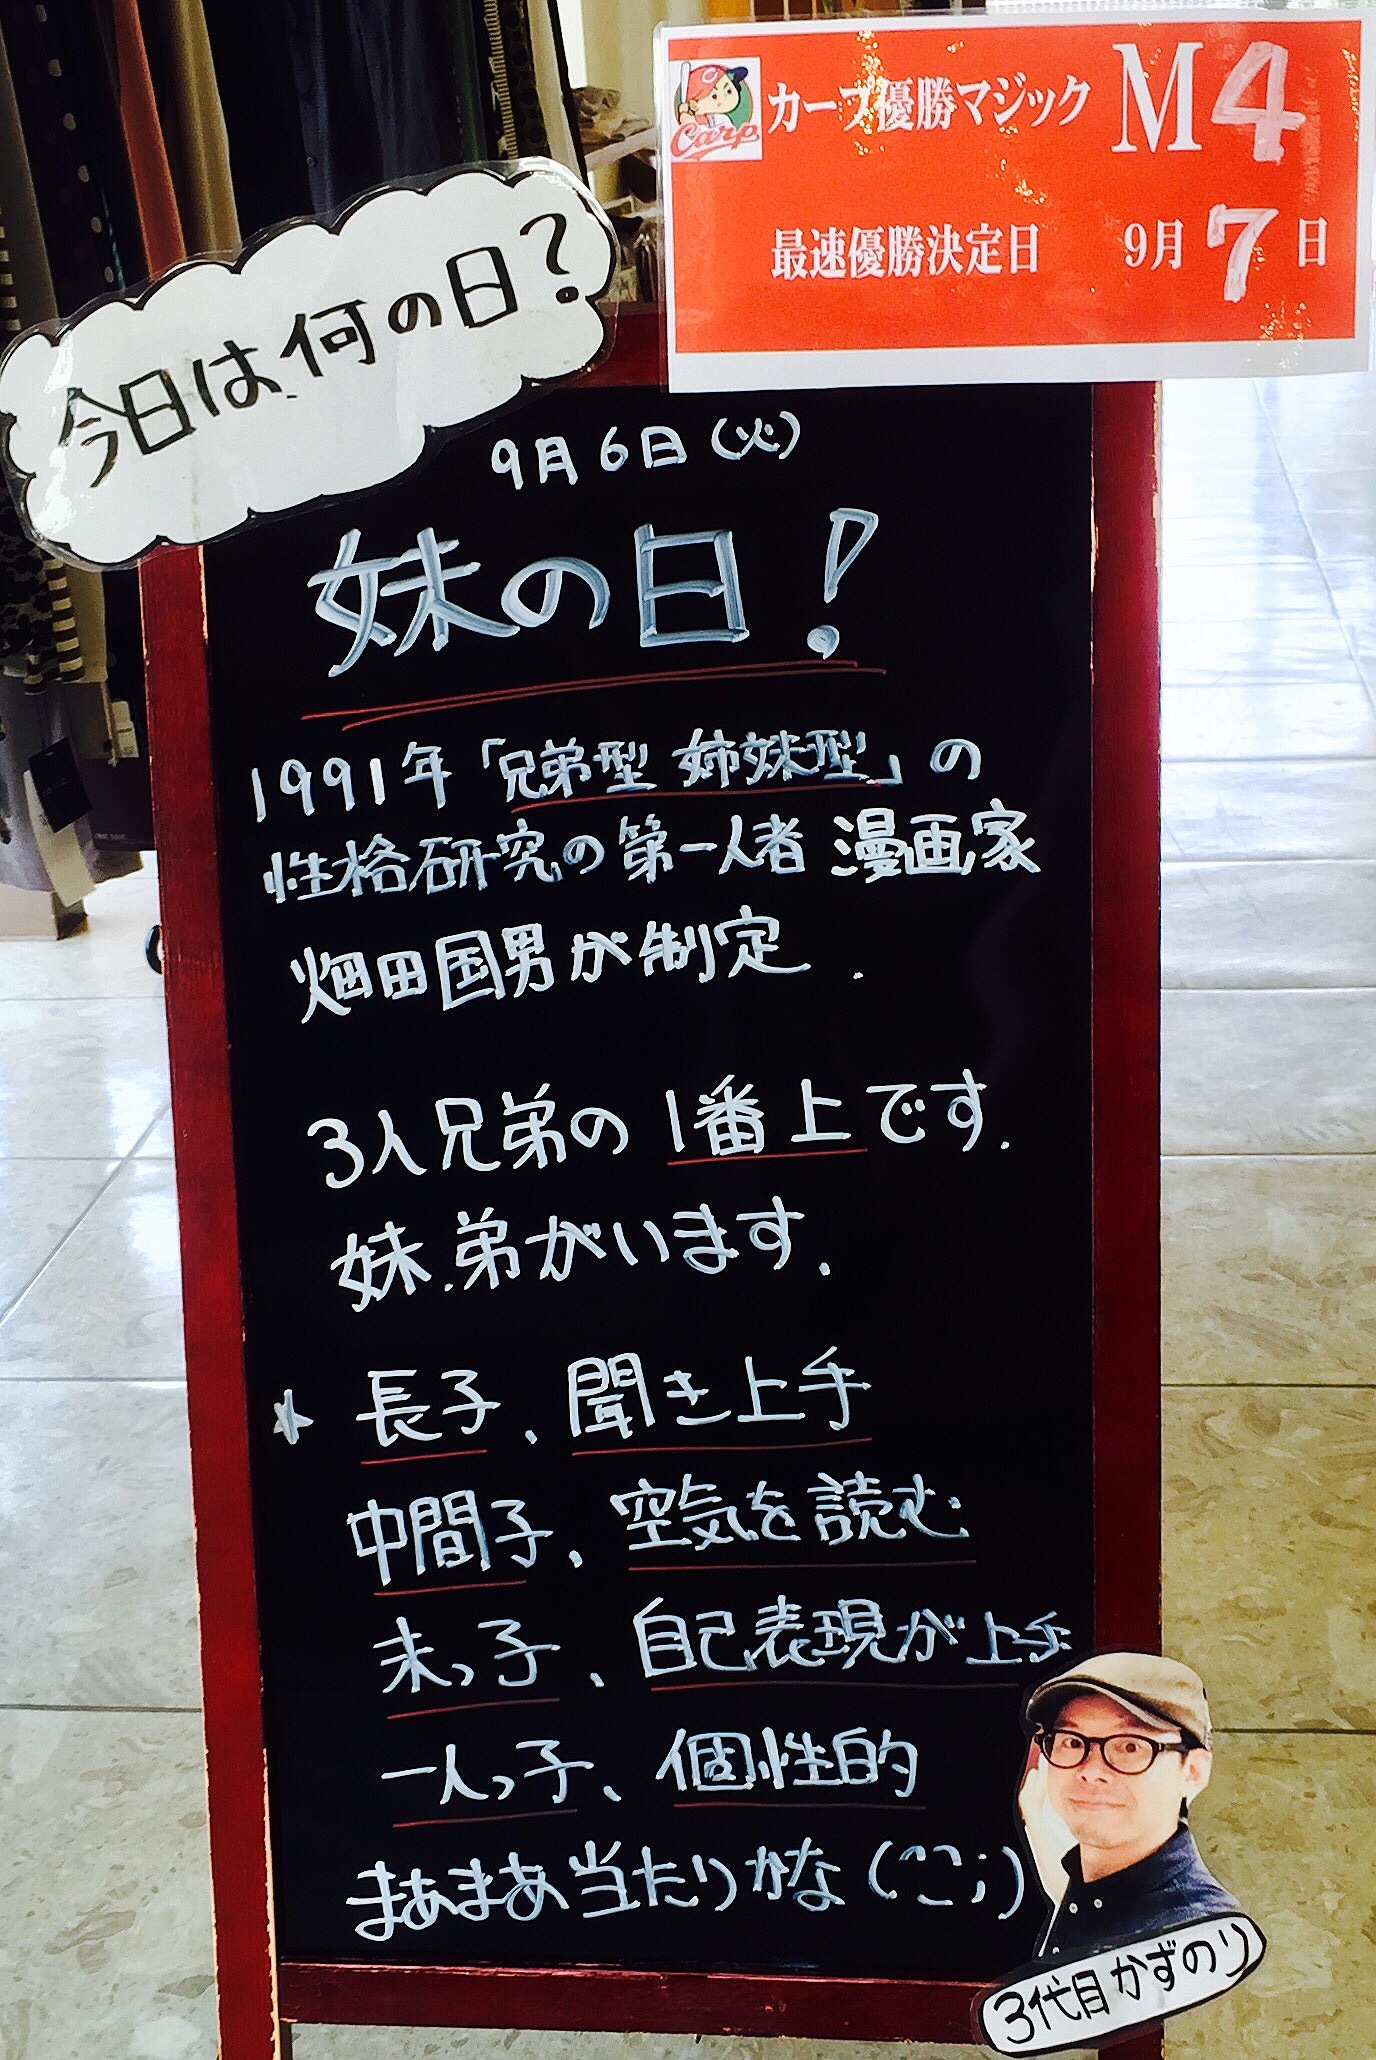 Carp
カープ優勝マジック M4
最速優勝決定日 9月7日
今日は何の日?
9月6日(火)
妹の日!
1991年「兄弟型 姉妹型」の
性格研究の第一人者 漫画家
畑田国男が制定.
3人兄弟の1番上です.
妹.弟がいます.
★ 長子、聞き上手
中間子、空気を読む
末っ子、自己表現が上手
一人っ子、個性的
まあまあ当たりかな(^^;)
3代目かずのり